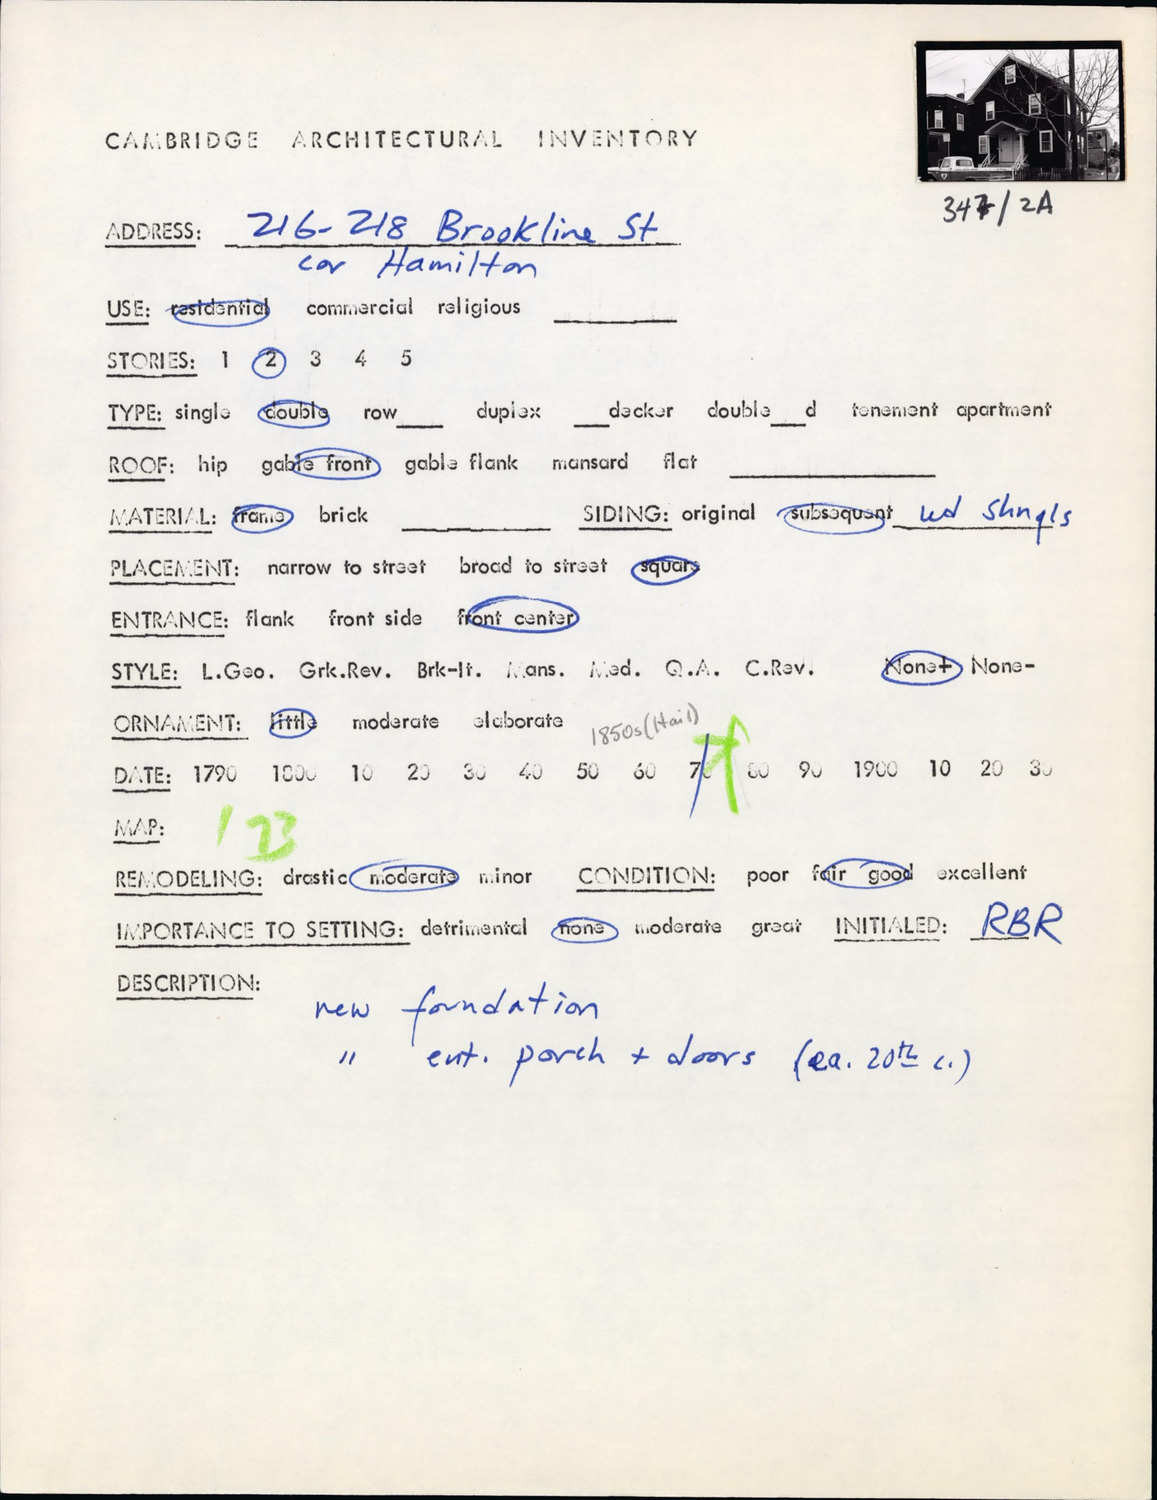 CAMBRIDGE ARCHITECTURAL INVENTORY
347/2A
ADDRESS: 216-218 Brookline St
cor Hamilton
USE: residential commercial religious
STORIES: 1 2 3 4 5
TYPE: single double row___ duplex ___decker double___d tenement apartment
ROOF: hip gable front gable flank mansard flat
MATERIAL: frame brick ___ SIDING: original subsequent wd shngls
PLACEMENT: narrow to street broad to street square
ENTRANCE: flank front side front center
STYLE: L.Geo. Grk.Rev. Brk-It. Mans. Med. Q.A. C.Rev. None+ None-
ORNAMENT: little moderate elaborate
1850s (Hail)
DATE: 1790 1800 10 20 30 40 50 60 70 80 90 1900 10 20 30
MAP: '23
REMODELING: drastic moderate minor CONDITION: poor fair good excellent
IMPORTANCE TO SETTING: detrimental none moderate great INITIALED: RBR
DESCRIPTION:
new foundation
" ent. porch + doors (ea. 20th c.)